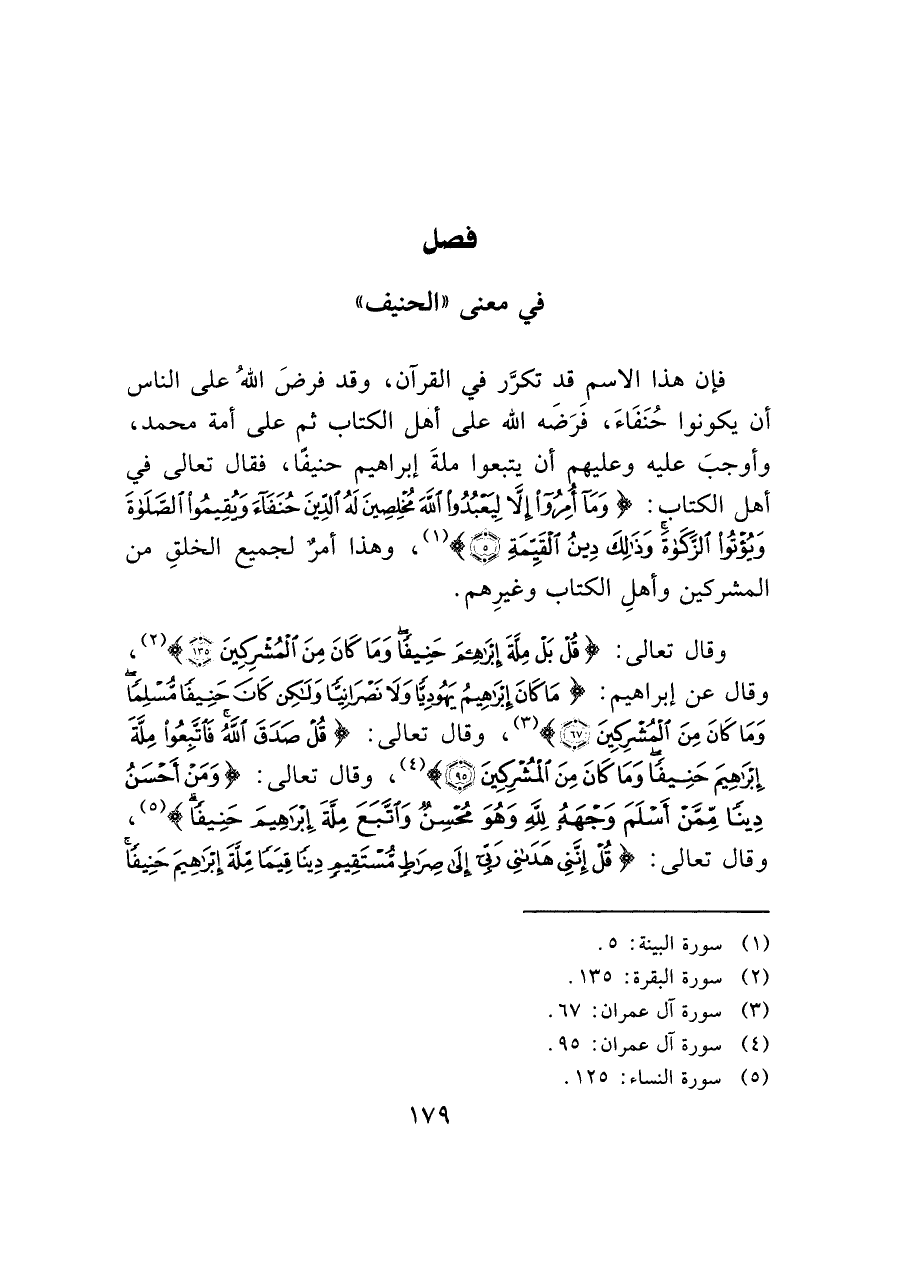 فصل
في معنى «الحنيف»
فإن هذا الاسم قد تكرَّر في القرآن، وقد فرضَ اللهُ على الناس
أن يكونوا حُنَفَاءَ، فَرَضَه الله على أهل الكتاب ثم على أمة محمد،
وأوجبَ عليه وعليهم أن يتبعوا ملةَ إبراهيم حنيفًا، فقال تعالى في
أهل الكتاب: ﴿ وَمَآ أُمِرُوٓاْ إِلَّا لِيَعۡبُدُواْ ٱللَّهَ مُخۡلِصِينَ لَهُ ٱلدِّينَ حُنَفَآءَ وَيُقِيمُواْ ٱلصَّلَوٰةَ
وَيُؤۡتُواْ ٱلزَّكَوٰةَۚ وَذَٰلِكَ دِينُ ٱلۡقَيِّمَةِ ٥ ﴾(١)، وهذا أمرٌ لجميع الخلقِ من
المشركين وأهلِ الكتاب وغيرِهم.
وقال تعالى: ﴿ قُلۡ بَلۡ مِلَّةَ إِبۡرَٰهِـۧمَ حَنِيفٗاۖ وَمَا كَانَ مِنَ ٱلۡمُشۡرِكِينَ ١٣٥ ﴾(٢)،
وقال عن إبراهيم: ﴿ مَا كَانَ إِبۡرَٰهِيمُ يَهُودِيّٗا وَلَا نَصۡرَانِيّٗا وَلَٰكِن كَانَ حَنِيفٗا مُّسۡلِمٗاۖ
وَمَا كَانَ مِنَ ٱلۡمُشۡرِكِينَ ٦٧ ﴾(٣)، وقال تعالى: ﴿ قُلۡ صَدَقَ ٱللَّهُۗ فَٱتَّبِعُواْ مِلَّةَ
إِبۡرَٰهِيمَ حَنِيفٗاۖ وَمَا كَانَ مِنَ ٱلۡمُشۡرِكِينَ ٩٥ ﴾(٤)، وقال تعالى: ﴿ وَمَنۡ أَحۡسَنُ
دِينٗا مِّمَّنۡ أَسۡلَمَ وَجۡهَهُۥ لِلَّهِ وَهُوَ مُحۡسِنٞ وَٱتَّبَعَ مِلَّةَ إِبۡرَٰهِيمَ حَنِيفٗاۗ ﴾(٥)،
وقال تعالى: ﴿ قُلۡ إِنَّنِي هَدَىٰنِي رَبِّيٓ إِلَىٰ صِرَٰطٖ مُّسۡتَقِيمٖ دِينٗا قِيَمٗا مِّلَّةَ إِبۡرَٰهِيمَ حَنِيفٗاۚ
(١) سورة البينة: ٥.
(٢) سورة البقرة: ١٣٥.
(٣) سورة آل عمران: ٦٧.
(٤) سورة آل عمران: ٩٥.
(٥) سورة النساء: ١٢٥.
١٧٩